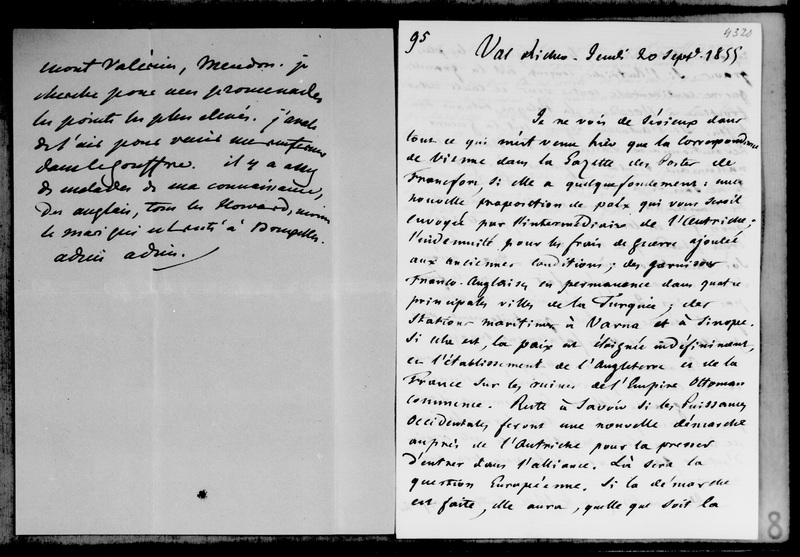 mont Valérien, Meudon. je
cherche pour mes promenades
les points les plus élevés. j'aurais
de l'air pour venir me renfermer
dans le gouffre. il y a assez
de malades de ma connaissance,
des anglais, tous les Howard, moins
le mari qui est resté à Bruxelles.
adieu adieu.
95
4320
Val Richer. Jeudi 20 Septe. 1855
Je ne vois de sérieux dans
tout ce qui m'est venu hier que la correspondance
de Vienne dans la Gazette des Postes de
Francfort, si elle a quelque fondement : une
nouvelle proposition de paix qui vous serait
envoyée par l'intermédiaire de l'Autriche ;
l'indemnité pour les frais de guerre ajoutée
aux anciennes conditions ; des garnisons
Franco-Anglaises en permanence dans quatre
principales villes de la Turquie ; des
stations maritimes à Varna et à Sinope.
Si cela est, la paix est éloignée indéfiniment,
et l'établissement de l'Angleterre et de la
France sur les ruines de l'Empire Ottoman
commence. Reste à savoir si les Puissances
Occidentales feront une nouvelle démarche
auprès de l'Autriche pour la presser
d'entrer dans l'alliance. Là sera la
question Européenne. Si la démarche
est faite, elle aura, quelle que soit la
8